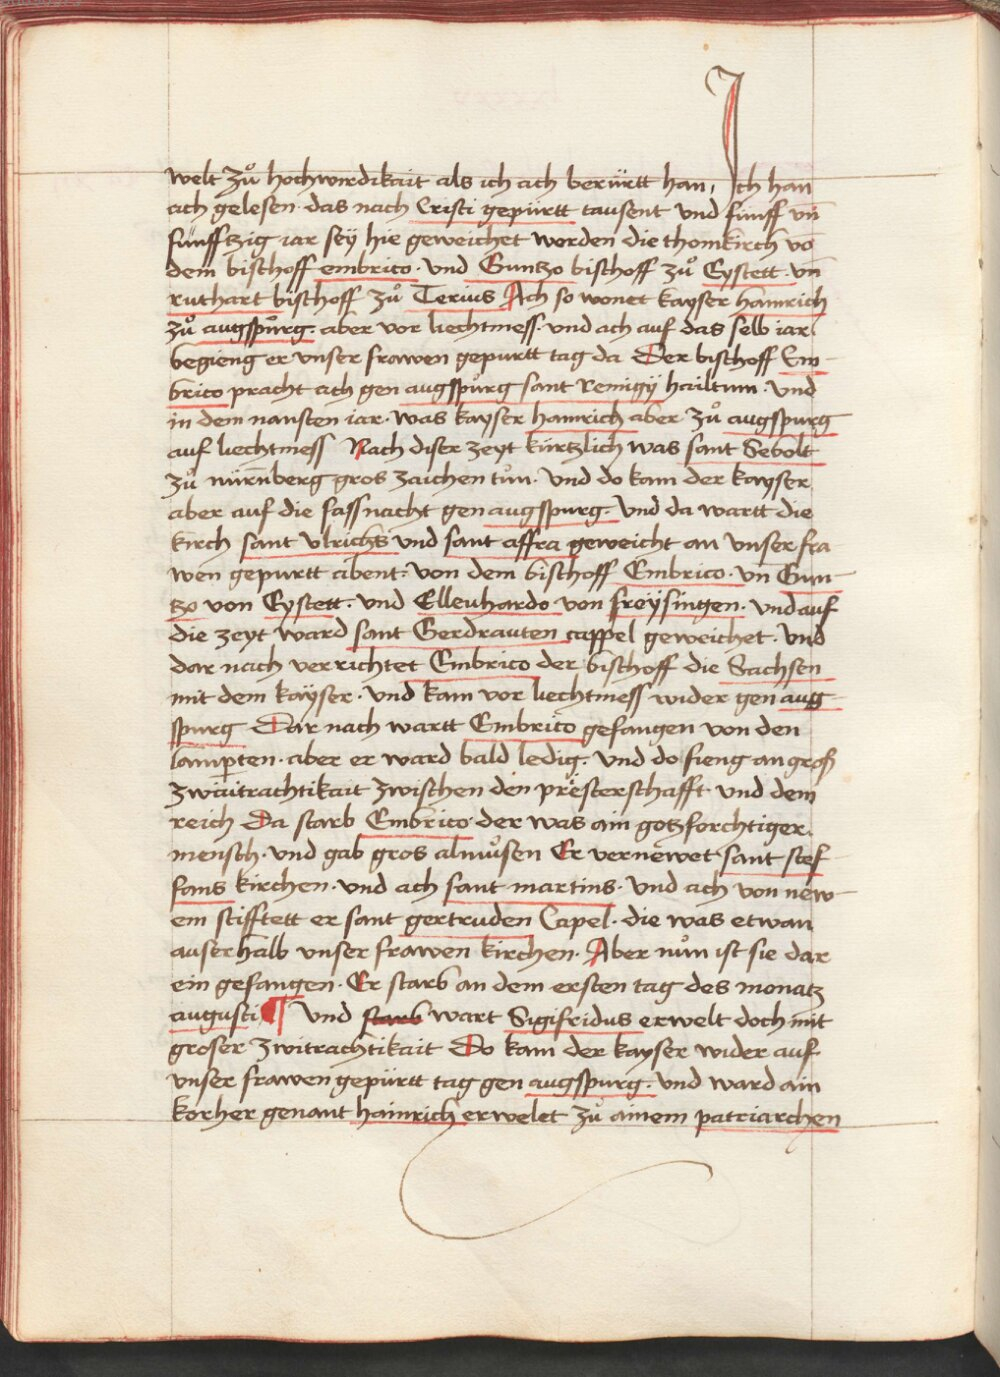 welt zů hochwirdikait als ich ach berürtt han, Ich han
ach gelesen· das nach Cristi gepürtt tausent und fünff vn̄
fünfftzig iar seÿ hie geweichet worden die thomkirch vō
dem bischoff embrico· und Guntzo bischoff zů Eystett· vn̄
ruthart bischoff zů Terius Ach so wonet kayser hainrich
zů augspůrg· aber vor liechtmess· und ach auf das selb iar
begieng er vnser frawen gepurtt tag da Der bischoff Em-
brico pracht ach gen augspůrg sant remigÿ hailtum· und
in dem nansten iar· was kayser hainrich aber zů augspurg
auf liechtmess Nach diser zeyt kürtzlich was sant Sebolt
zů nürn̄berg gros zaichen tůn· und do kam der kayser
aber auf die fassnacht gen augspurg· und da wartt die
kirch sant vlrichs und sant affra geweicht an vnser fra
wen gepurtt abent· von dem bischoff Embrico· vn̄ Gun-
tzo von Eystett· und Ellenhardo von freÿsingen· und auf
die zeyt ward sant Gerdrauten cappel geweichet· und
dar nach verrichtet Embrico der bischoff die Sachsen
mit dem kaÿser· und kam vor liechtmess wider gen aug
spurg Dar nach wartt Embrico gefangen von den
lamparten· aber er ward bald ledig· und do fieng an groß
zwaitrachtikait zwischen den priesterschafft· und dem
reich Da starb Embrico· der was ain gotzforchtiger
mensch· und gab gros almůsen Er vernewet sant stef
fans kirchen· und ach sant martins· und ach von new-
em stifftett er sant gertruden Capel· die was etwan
auserhalb vnser frawen kirchen· Aber nůn ist sie dar
ein gefangen· Er starb an dem ersten tag des monatz
augusti ¶ und starb wart Sigifridus erwelt doch mit
groser zwitrachtikait Do kam der kayser wider auf
vnser frawen gepürtt tag gen augspurg· und ward ain
korher genant hainrich erwelet zů ainem patriarchen